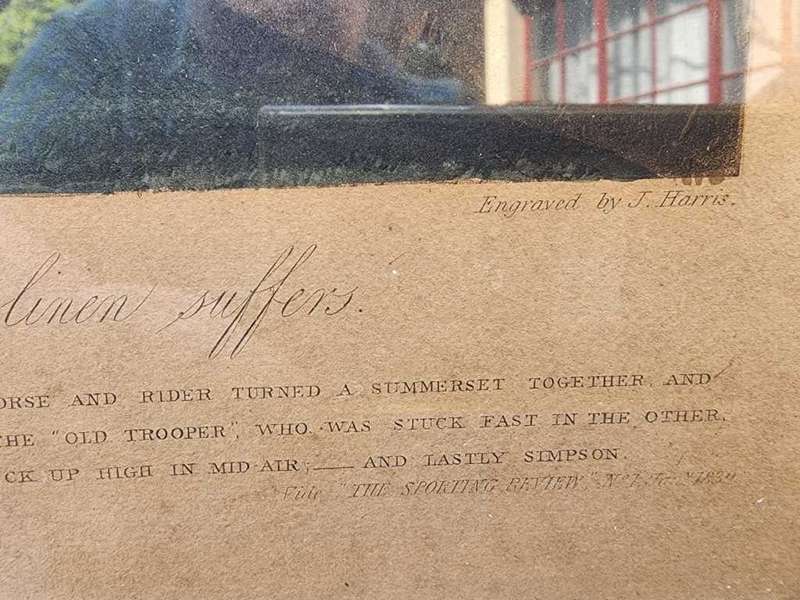 Engraved by J. Harris.
linen suffers.
ORSE AND RIDER TURNED A SUMMERSET TOGETHER, AND
THE "OLD TROOPER", WHO WAS STUCK FAST IN THE OTHER,
CK UP HIGH IN MID-AIR; — AND LASTLY SIMPSON.
Vide "THE SPORTING REVIEW," No 1, 1839